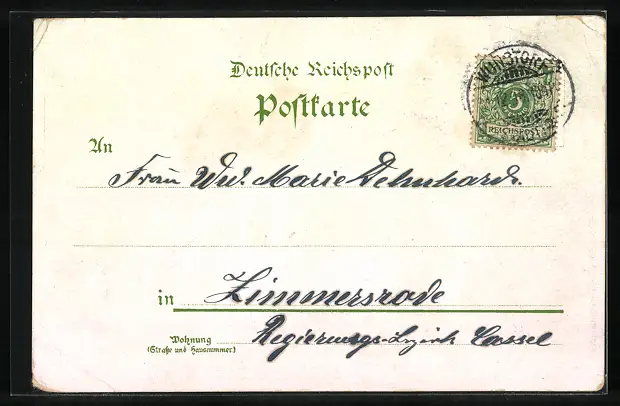 Deutsche Reichspost
Postkarte
An
Frau Ww. Marie Dehnhardt.
in Zimmersrode
Wohnung
(Straße und Hausnummer)
Regierungs-bezirk Cassel
5
REICHSPOST